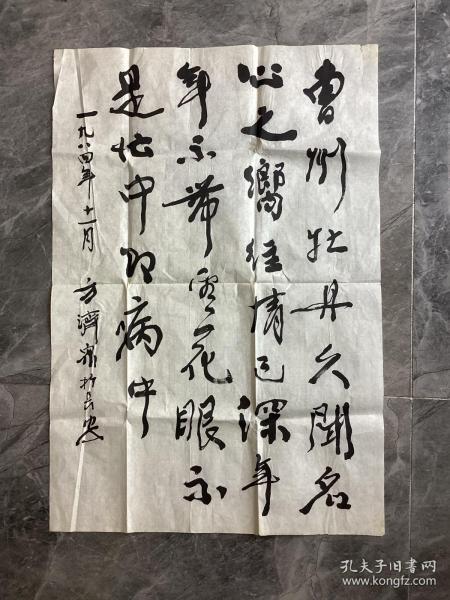 曹州牡丹久闻名
心之嚮往情已深年
年不带看花眼不
是忙中即病中
一九八四年十一月 方濟眾於长安
孔夫子旧书网
www.kongfz.com